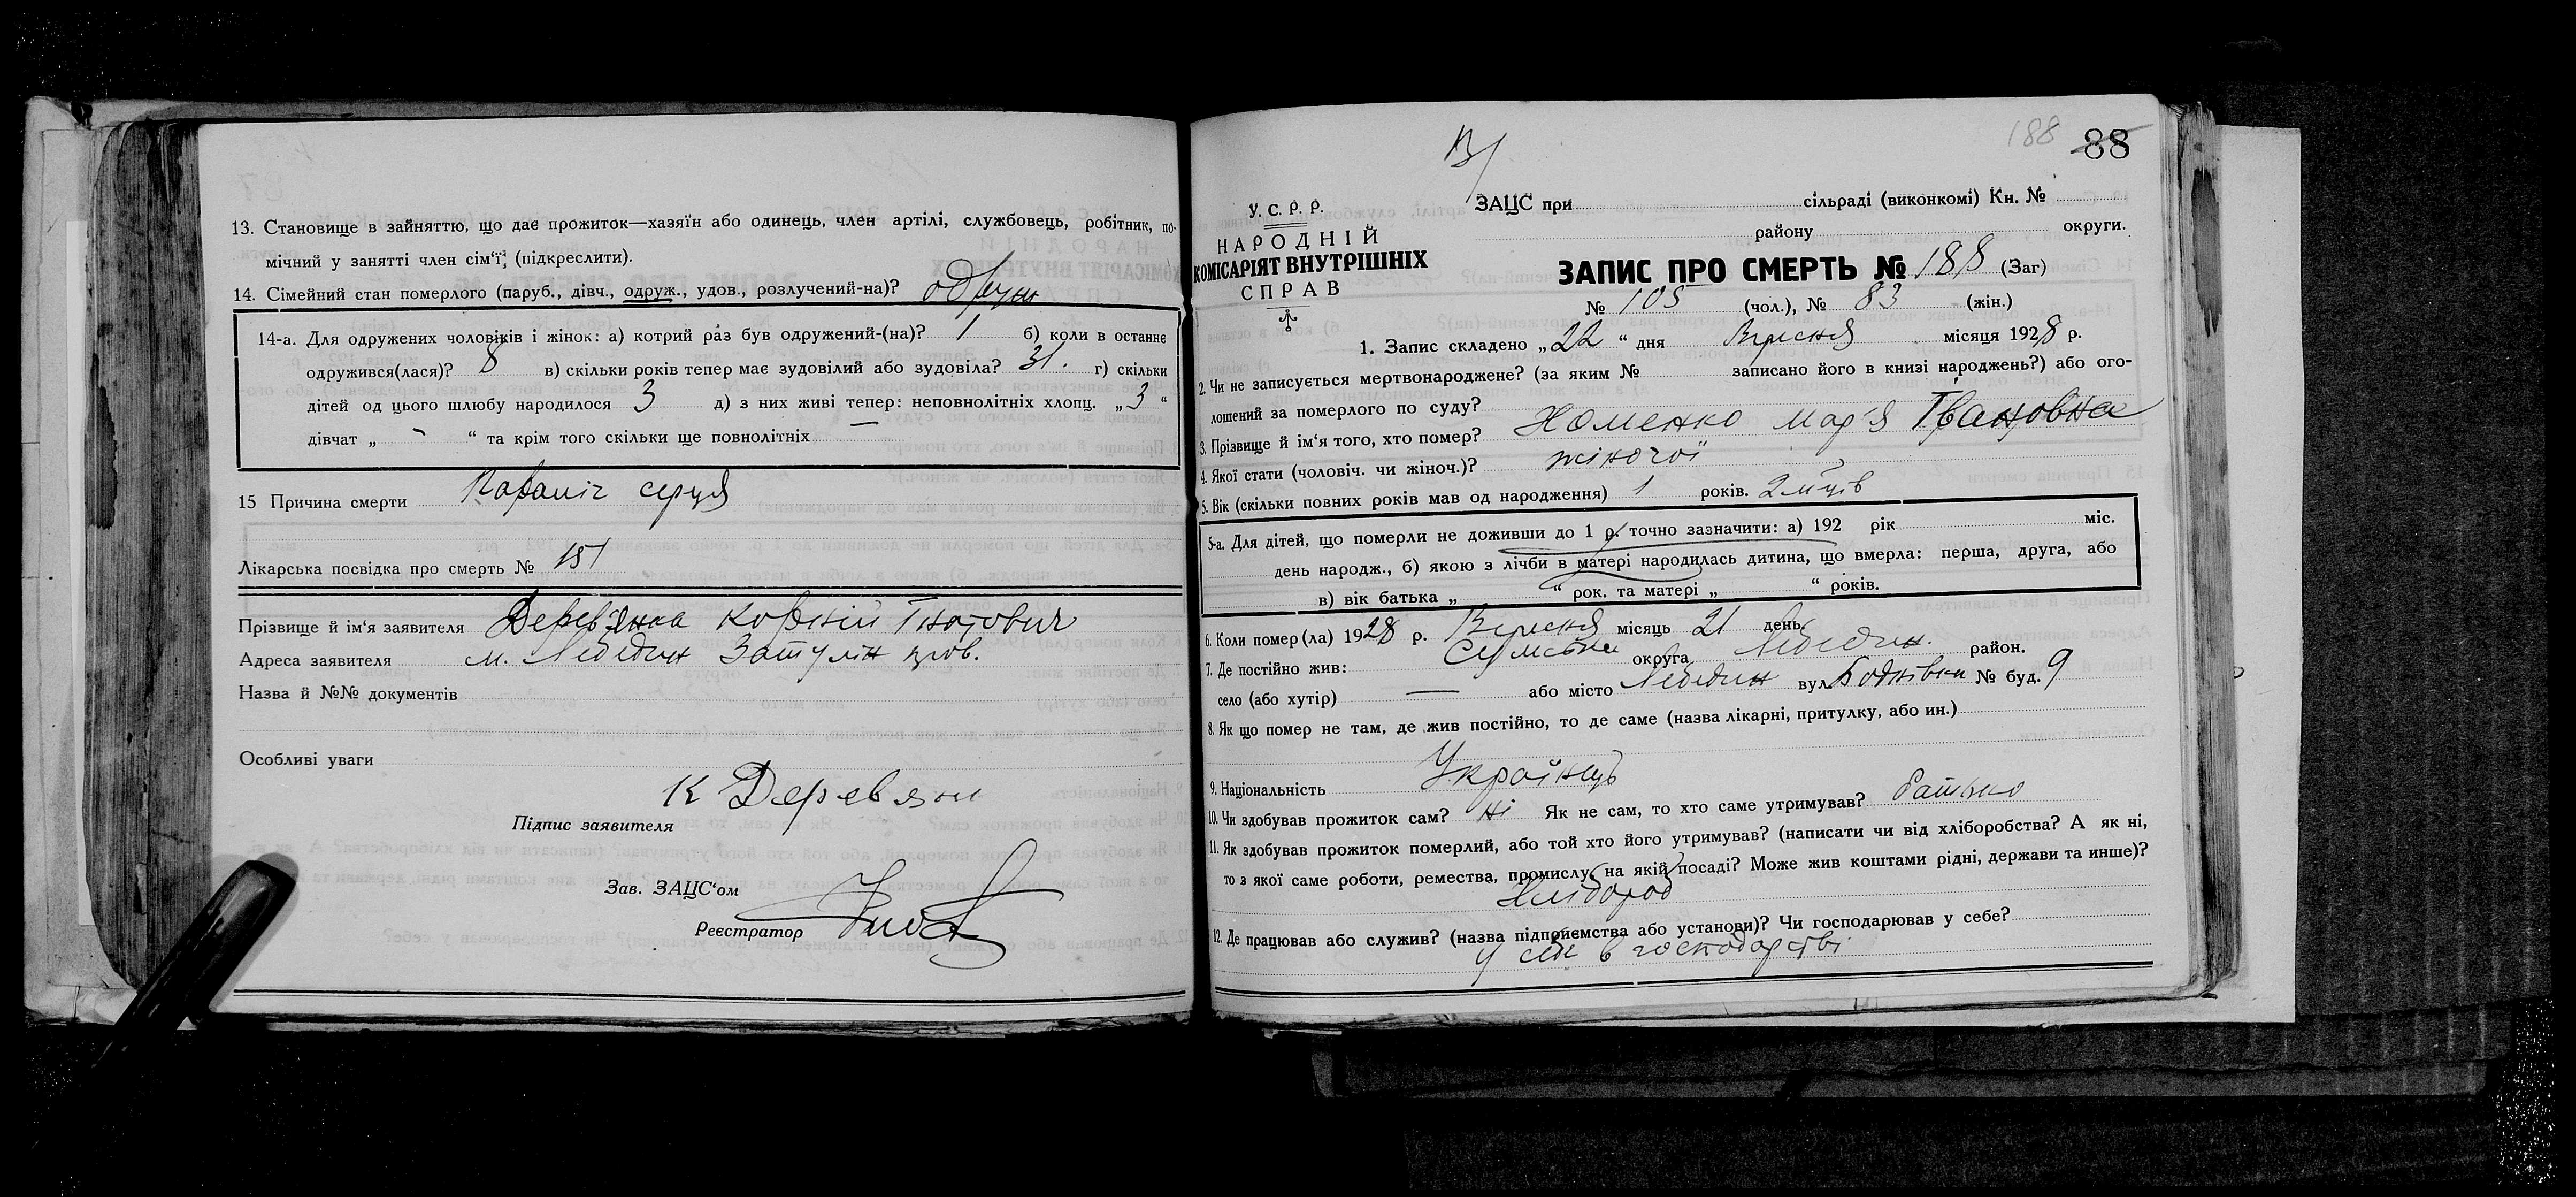 13. Становище в зайняттю, що дає прожиток—хазяїн або одинець, член артілі, службовець, робітник, по-
мічний у занятті член сім'ї; (підкреслити).
14. Сімейний стан померлого (паруб., дівч., одруж., удов., розлучений-на)? одруж
14-а. Для одружених чоловіків і жінок: а) котрий раз був одружений-(на)? 1 б) коли в останнє
одружився(лася)? 8 в) скільки років тепер має зудовілий або зудовіла? 31. г) скільки
дітей од цього шлюбу народилося 3 д) з них живі тепер: неповнолітніх хлопц. „3“
дівчат „ - “ та крім того скільки ще повнолітніх —
15 Причина смерти Параліч серця
Лікарська посвідка про смерть № 151
Прізвище й ім'я заявителя Дерев'янка Корній Гнатович
Адреса заявителя м. Лебедин Затулін пров.
Назва й №№ документів
Особливі уваги
К Деревянк
Підпис заявителя
Зав. ЗАЦС'ом
Реєстратор
188 88
У. С. Р. Р.
НАРОДНІЙ
КОМІСАРІЯТ ВНУТРІШНІХ
СПРАВ
ЗАЦС при сільраді (виконкомі) Кн. №
району округи.
ЗАПИС ПРО СМЕРТЬ № 188 (Заг)
№ 105 (чол.), № 83 (жін.)
1. Запис складено „22“ дня Вересня місяця 1928 р.
2. Чи не записується мертвонароджене? (за яким № записано його в книзі народжень?) або ого-
лошений за померлого по суду?
3. Прізвище й ім'я того, хто помер? Хоменко Мар'я Івановна
4. Якої стати (чоловіч. чи жіноч.)? жіночої
5. Вік (скільки повних років мав од народження) 1 років. 2 м-ців
5-а. Для дітей, що померли не доживши до 1 р. точно зазначити: а) 192 рік міс.
день народж., б) якою з лічби в матері народилась дитина, що вмерла: перша, друга, або
в) вік батька „ “ рок. та матері „ “ років.
6. Коли помер(ла) 1928 р. Вересня місяць 21 день.
7. Де постійно жив: Сумська округа Лебедин. район.
село (або хутір) — або місто Лебедин вул. № буд. 9
8. Як що помер не там, де жив постійно, то де саме (назва лікарні, притулку, або ин.)
9. Національність Українець
10. Чи здобував прожиток сам? ні Як не сам, то хто саме утримував? Батько
11. Як здобував прожиток померлий, або той хто його утримував? (написати чи від хліборобства? А як ні,
то з якої саме роботи, ремества, промислу, на якій посаді? Може жив коштами рідні, держави та инше)?
Хлібороб
12. Де працював або служив? (назва підприємства або установи)? Чи господарював у себе?
у себе в господарстві